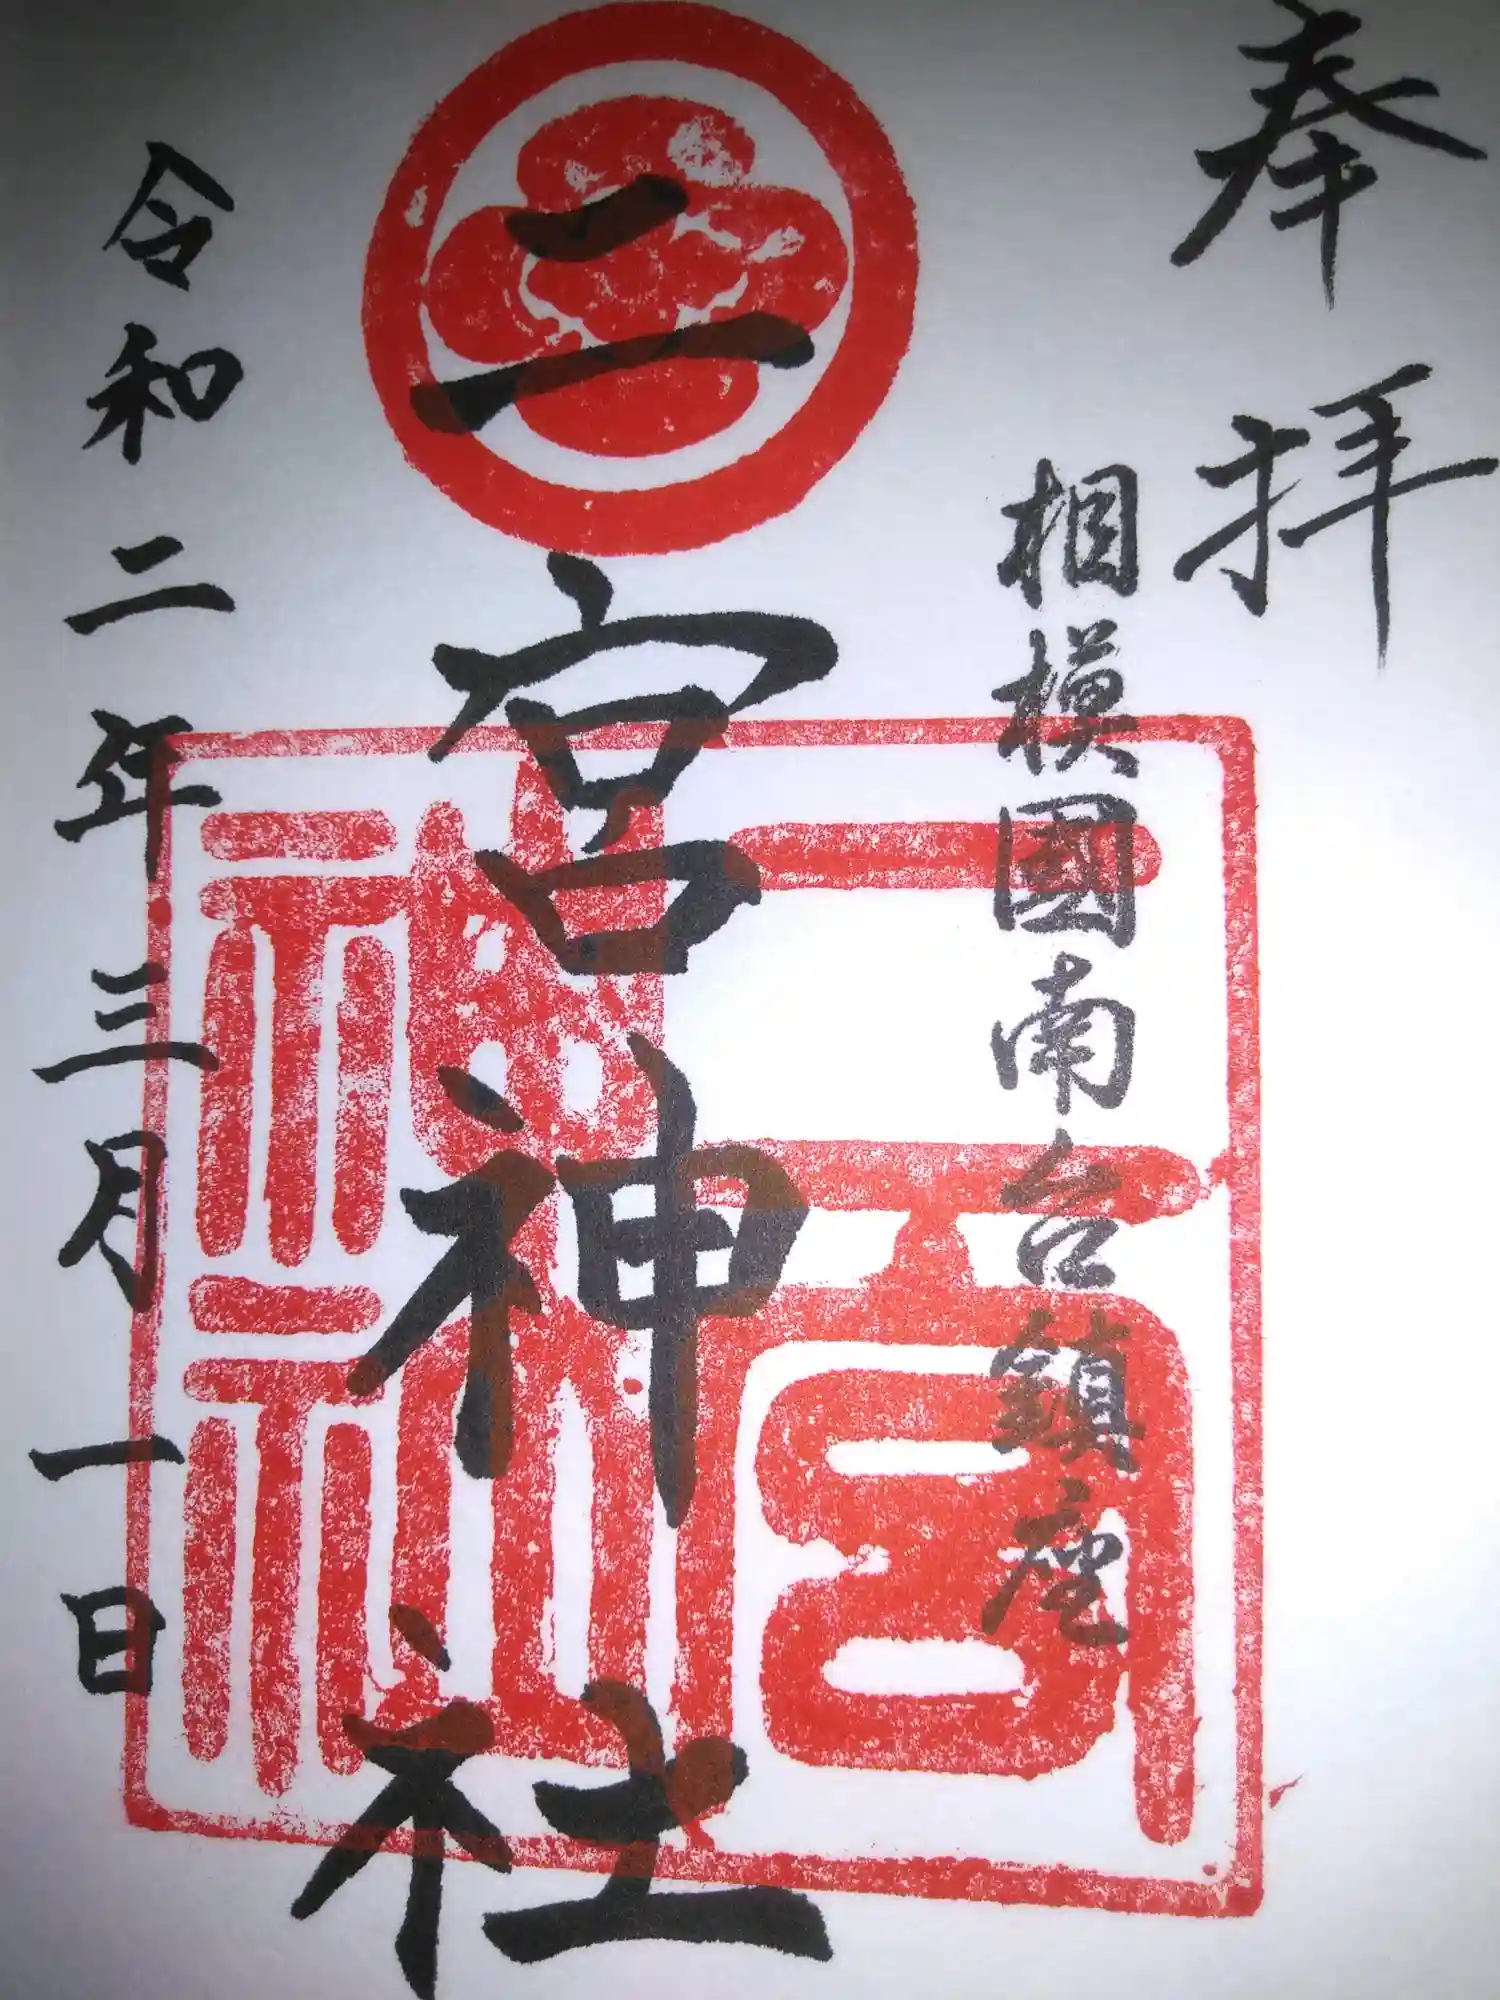 奉拝
相模國南台鎮座
二宮神社
令和二年三月一日
二宮神社